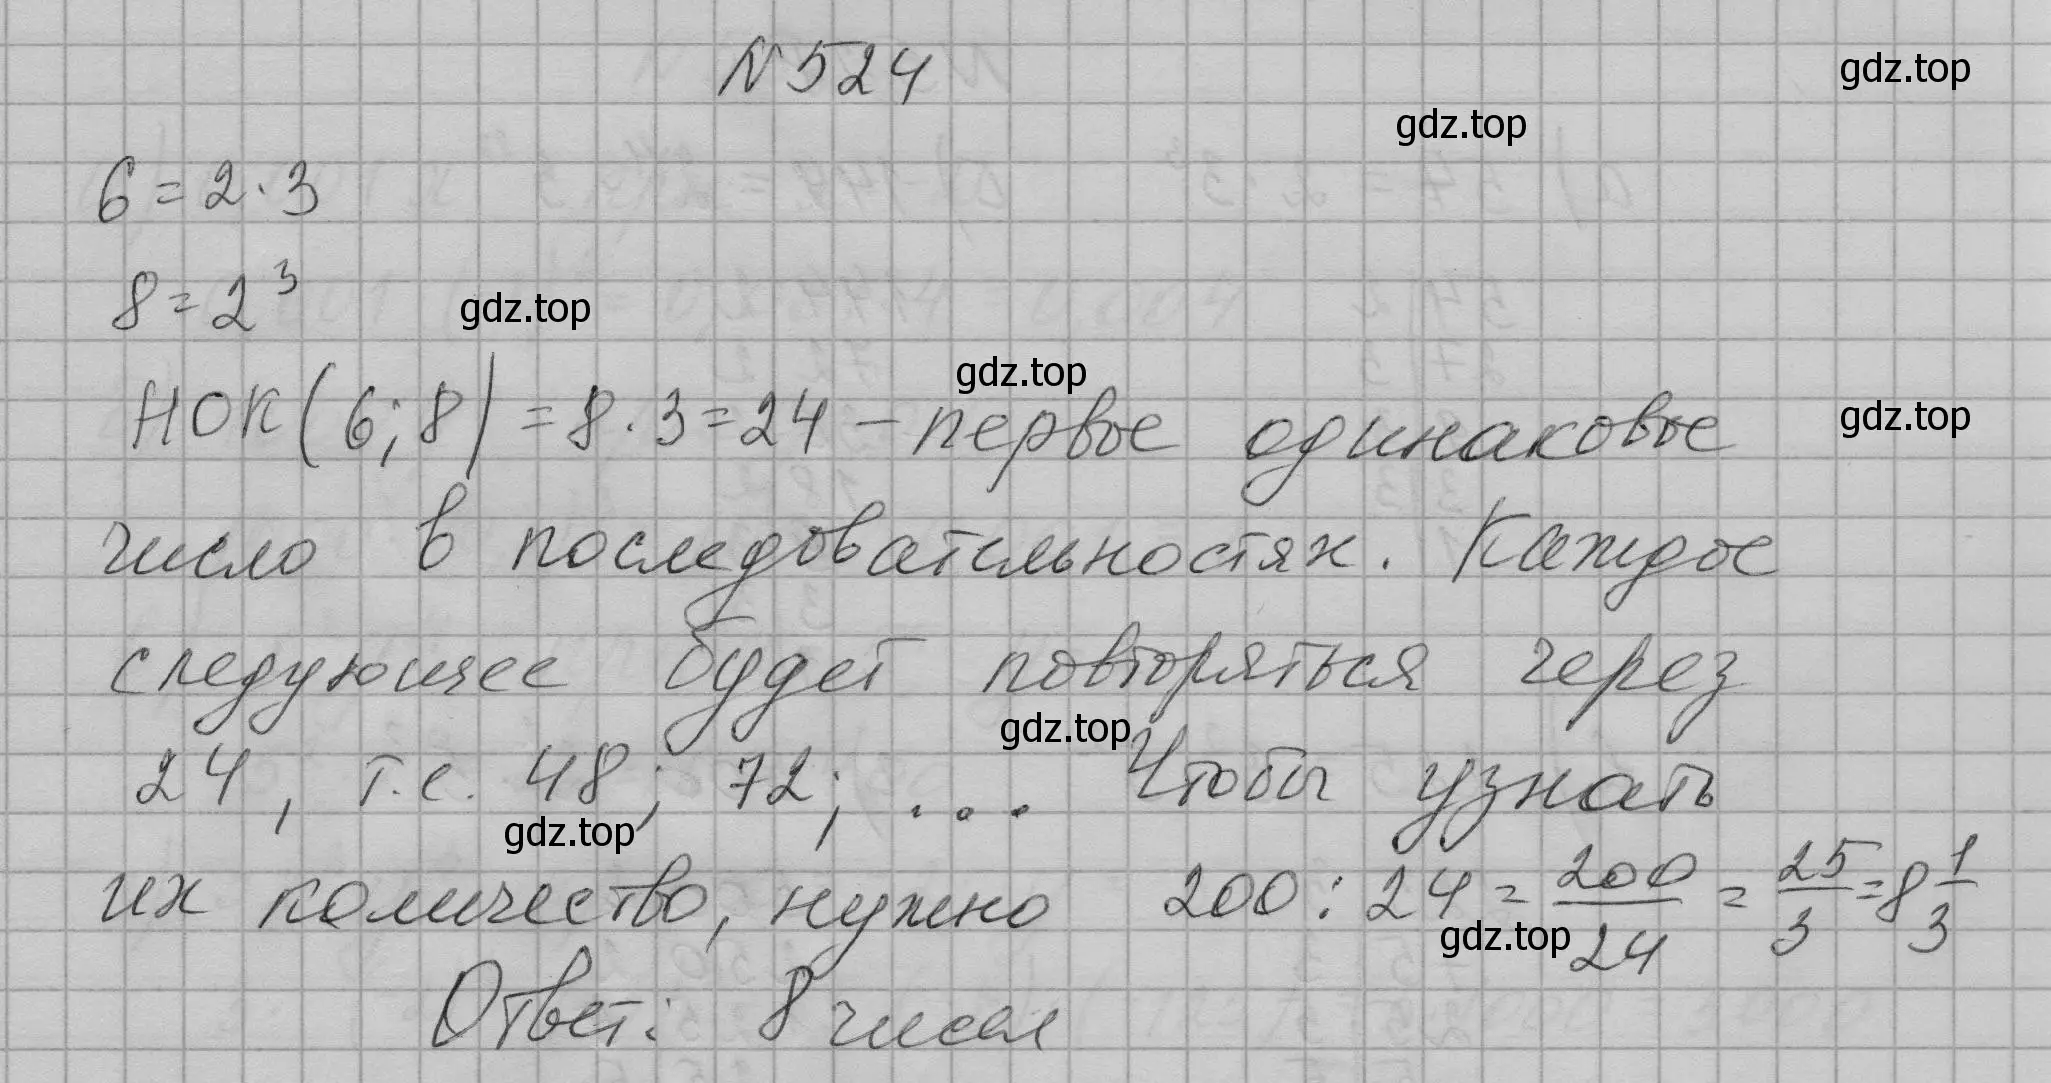 N 524
gdz.top
gdz.top
6 = 2 · 3
8 = 2³
gdz.top
gdz.top
НОК(6;8) = 8 · 3 = 24 – первое одинаковое
gdz.top
число в последовательностях. Каждое
следующее будет повторяться через
gdz.top
24, т.е. 48; 72; ... Чтобы узнать
gdz.top
их количество, нужно 200 : 24 = 200/24 = 25/3 = 8 1/3
gdz.top
Ответ: 8 чисел